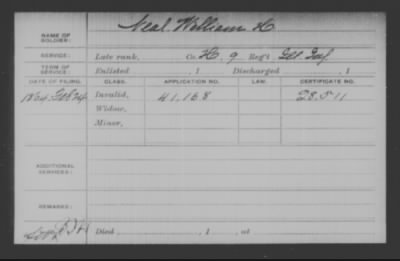 NAME OF SOLDIER: Neal, William H
SERVICE: Late rank, Co. H, 9 Reg't Del Inf.
TERM OF SERVICE: Enlisted , 1 Discharged , 1
DATE OF FILING. CLASS. APPLICATION NO. LAW. CERTIFICATE NO.
1864 Feb 24 Invalid, 41,168 28.511
Widow,
Minor,
ADDITIONAL SERVICES:
REMARKS:
Died , 1 , at